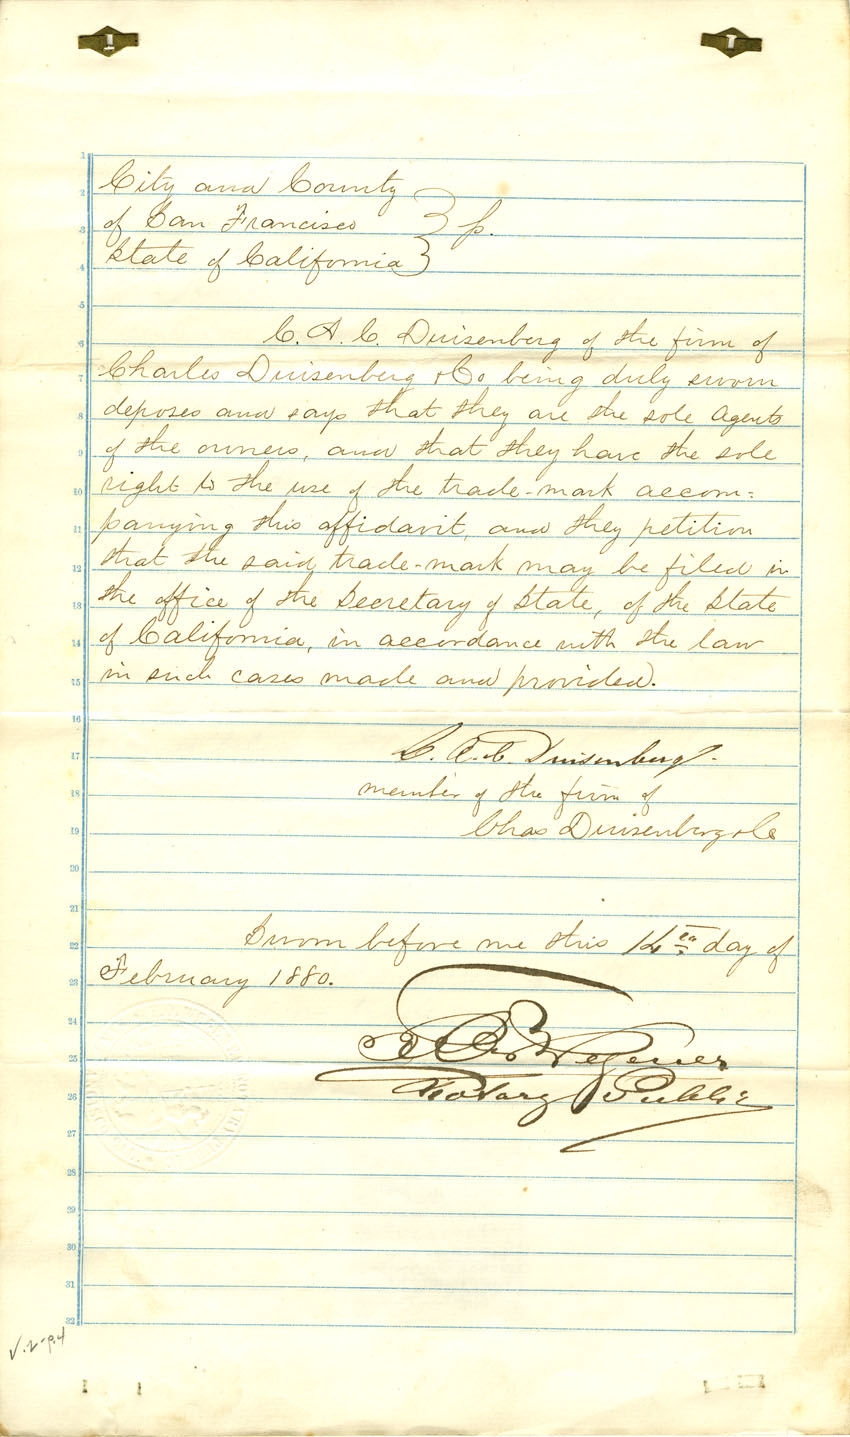 City and County
of San Francisco
State of California
C. A. C. Duisenberg of the firm of
Charles Duisenberg & Co being duly sworn
deposes and says that they are the sole Agents
of the owners, and that they have the sole
right to the use of the trade-mark accom=
panying this affidavit, and they petition
that the said trade-mark may be filed in
the office of the Secretary of State, of the State
of California, in accordance with the law
in such cases made and provided.
C. A. C. Duisenberg.
member of the firm of
Chas Duisenberg & Co
Sworn before me this 14th day of
February 1880.
Wegener
Notary Public
V.2-p.4
1
2
3
4
5
6
7
8
9
10
11
12
13
14
15
16
17
18
19
20
21
22
23
24
25
26
27
28
29
30
31
32